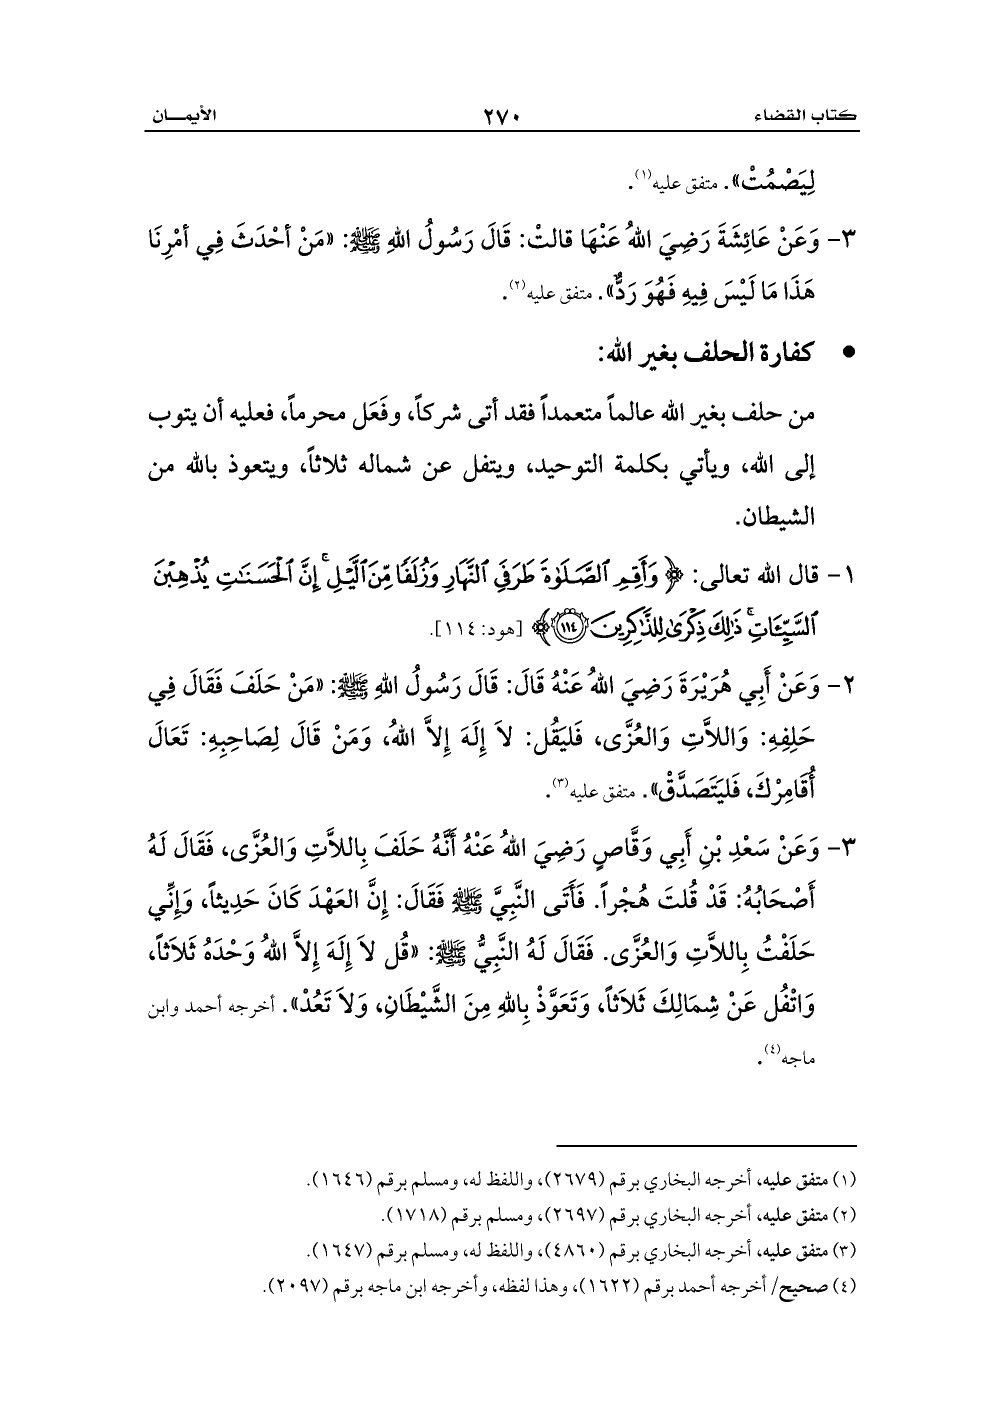 كتاب القضاء ٢٧٠ الأيمـــان
لِيَصْمُتْ». متفق عليه(١).
٣- وَعَنْ عَائِشَةَ رَضِيَ اللهُ عَنْهَا قالتْ: قَالَ رَسُولُ اللهِ ﷺ: «مَنْ أحْدَثَ فِي أمْرِنَا
هَذَا مَا لَيْسَ فِيهِ فَهُوَ رَدٌّ». متفق عليه(٢).
● كفارة الحلف بغير الله:
من حلف بغير الله عالماً متعمداً فقد أتى شركاً، وفَعَل محرماً، فعليه أن يتوب
إلى الله، ويأتي بكلمة التوحيد، ويتفل عن شماله ثلاثاً، ويتعوذ بالله من
الشيطان.
١- قال الله تعالى: ﴿وَأَقِمِ ٱلصَّلَوٰةَ طَرَفَيِ ٱلنَّهَارِ وَزُلَفًا مِّنَ ٱلَّيْلِ ۚ إِنَّ ٱلْحَسَنَٰتِ يُذْهِبْنَ
ٱلسَّيِّـَٔاتِ ۚ ذَٰلِكَ ذِكْرَىٰ لِلذَّٰكِرِينَ ۝١١٤﴾ [هود: ١١٤].
٢- وَعَنْ أَبِي هُرَيْرَةَ رَضِيَ اللهُ عَنْهُ قَالَ: قَالَ رَسُولُ اللهِ ﷺ: «مَنْ حَلَفَ فَقَالَ فِي
حَلِفِهِ: وَاللاَّتِ وَالعُزَّى، فَليَقُل: لاَ إِلَهَ إِلاَّ اللهُ، وَمَنْ قَالَ لِصَاحِبِهِ: تَعَالَ
أُقَامِرْكَ، فَليَتَصَدَّقْ». متفق عليه(٣).
٣- وَعَنْ سَعْدِ بْنِ أَبِي وَقَّاصٍ رَضِيَ اللهُ عَنْهُ أَنَّهُ حَلَفَ بِاللاَّتِ وَالعُزَّى، فَقَالَ لَهُ
أَصْحَابُهُ: قَدْ قُلتَ هُجْراً. فَأَتَى النَّبِيَّ ﷺ فَقَالَ: إِنَّ العَهْدَ كَانَ حَدِيثاً، وَإِنِّي
حَلَفْتُ بِاللاَّتِ وَالعُزَّى. فَقَالَ لَهُ النَّبِيُّ ﷺ: «قُل لاَ إِلَهَ إِلاَّ اللهُ وَحْدَهُ ثَلاَثاً،
وَاتْفُل عَنْ شِمَالِكَ ثَلاَثاً، وَتَعَوَّذْ بِاللهِ مِنَ الشَّيْطَانِ، وَلاَ تَعُدْ». أخرجه أحمد وابن
ماجه(٤).
(١) متفق عليه، أخرجه البخاري برقم (٢٦٧٩)، واللفظ له، ومسلم برقم (١٦٤٦).
(٢) متفق عليه، أخرجه البخاري برقم (٢٦٩٧)، ومسلم برقم (١٧١٨).
(٣) متفق عليه، أخرجه البخاري برقم (٤٨٦٠)، واللفظ له، ومسلم برقم (١٦٤٧).
(٤) صحيح/ أخرجه أحمد برقم (١٦٢٢)، وهذا لفظه، وأخرجه ابن ماجه برقم (٢٠٩٧).